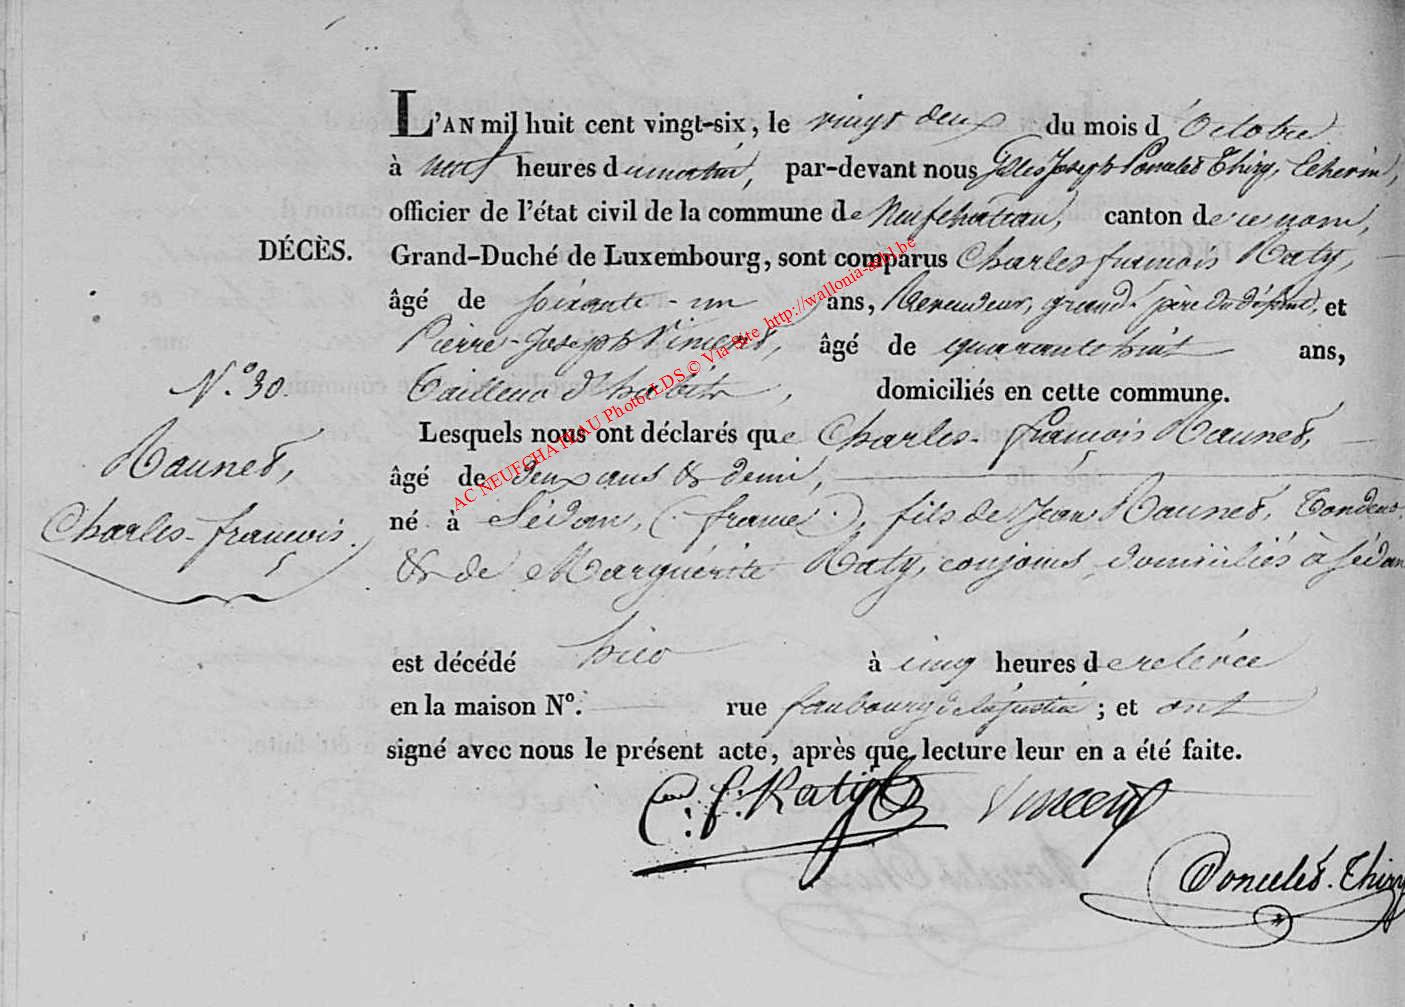 L'AN mil huit cent vingt-six, le vingt deux du mois d'Octobre
à neuf heures du matin, par-devant nous Gilles Joseph Doncelet Thiry, Echevin,
officier de l'état civil de la commune de Neufchateau, canton de ce nom,
DÉCÈS. Grand-Duché de Luxembourg, sont comparus Charles françois Katy,
âgé de soixante-un ans, Revendeur, grand-père du défunt, et
Pierre-Joseph Vincent, âgé de quarante huit ans,
N.º 30. Tailleur d'habits, domiciliés en cette commune.
Lesquels nous ont déclarés que Charles-françois Raunet,
Raunet, âgé de deux ans & demi,
Charles-françois. né à Sédan, (france), fils de Jean Raunet, Tondeur
& de Marguérite Katy, conjoints domiciliés à Sédan
est décédé hier à cinq heures de relevée
en la maison Nº. rue faubourg de la justice ; et ont
signé avec nous le présent acte, après que lecture leur en a été faite.
C. f. Katy Vincent
Doncelet-Thiry
AC NEUFCHATEAU Photo LDS © Via Site http://wallonia-asbl.be